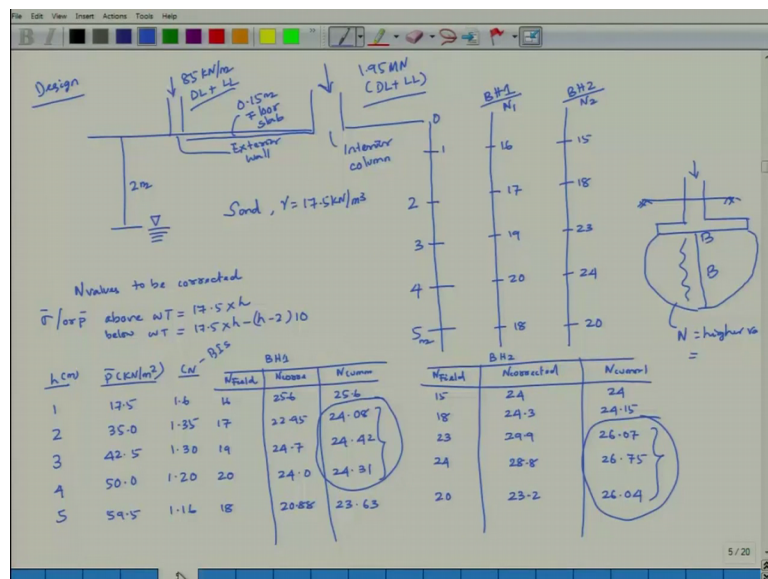 File Edit View Insert Actions Tools Help
Design
85 KN/m
DL + LL
1.95MN
(DL+ LL)
0.15m
Floor
slab
Exterior
wall
Interior
column
2m
Sand, γ = 17.5 KN/m³
0
1
2
3
4
5m
BH1
N1
16
17
19
20
18
BH2
N2
15
18
23
24
20
B
B
N = higher va
=
N values to be corrected
σ̄ / or p̄ above WT = 17.5 x h
below WT = 17.5 x h - (h-2) 10
BH1
h (m) p̄ (KN/m²) CN - BIS NField Ncorre Ncumm
1 17.5 1.6 16 25.6 25.6
2 35.0 1.35 17 22.95 24.08
3 42.5 1.30 19 24.7 24.42
4 50.0 1.20 20 24.0 24.31
5 59.5 1.16 18 20.88 23.63
BH2
NField Ncorrected Ncumml
15 24 24
18 24.3 24.15
23 29.9 26.07
24 28.8 26.75
20 23.2 26.04
5 / 20